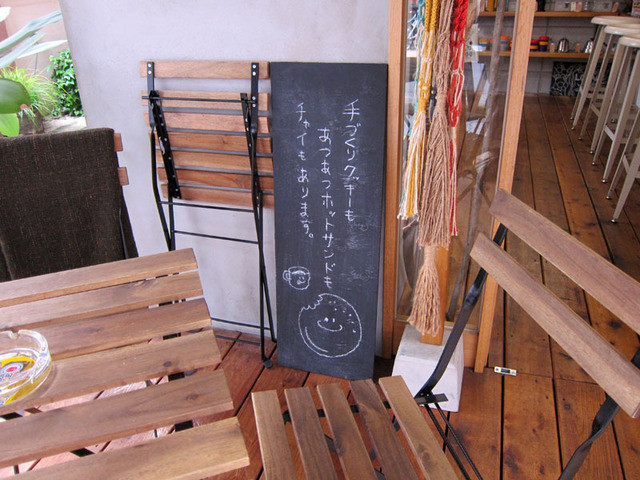 手づくりクッキーも
あつあつホットサンドも
チャイもあります。